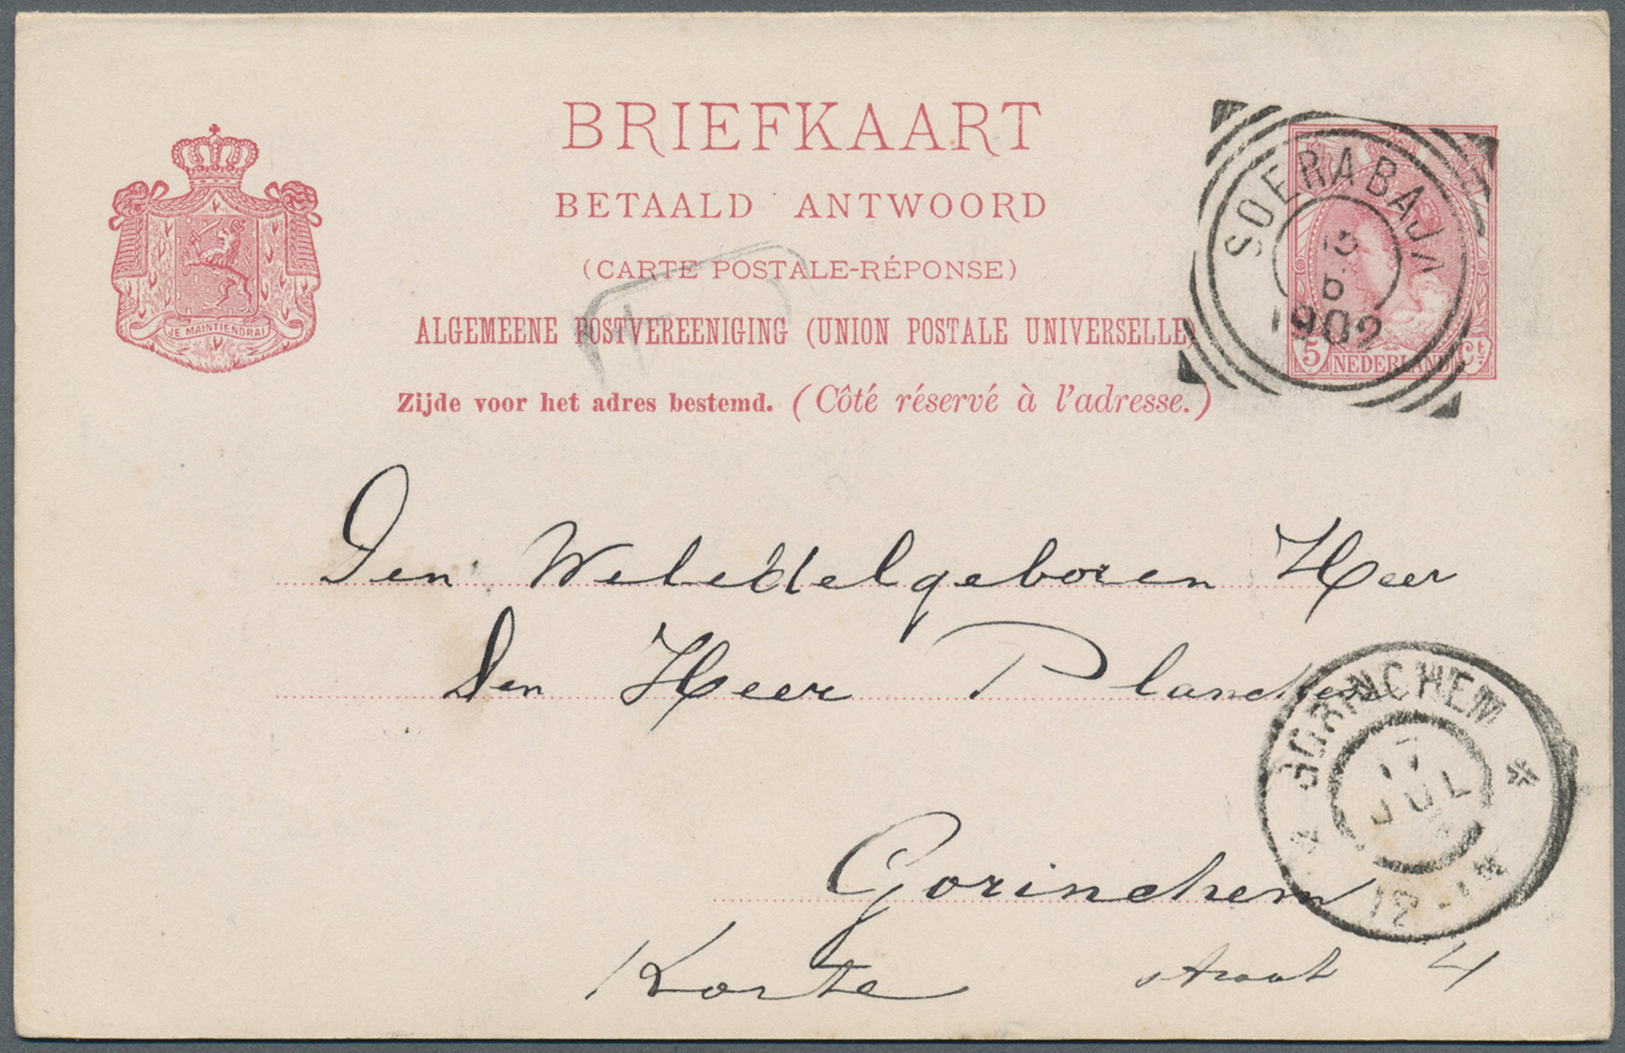 BRIEFKAART
BETAALD ANTWOORD
(CARTE POSTALE-RÉPONSE)
ALGEMEENE POSTVEREENIGING (UNION POSTALE UNIVERSELLE)
Zijde voor het adres bestemd. (Côté réservé à l'adresse.)
JE MAINTIENDRAI
SOERABAJA
1902
5 NEDERLAND Ct.
Den Weledelgeboren Heer
Den Heer Planchen
GORINCHEM
17
JUL
Gorinchem
Korte straat 4